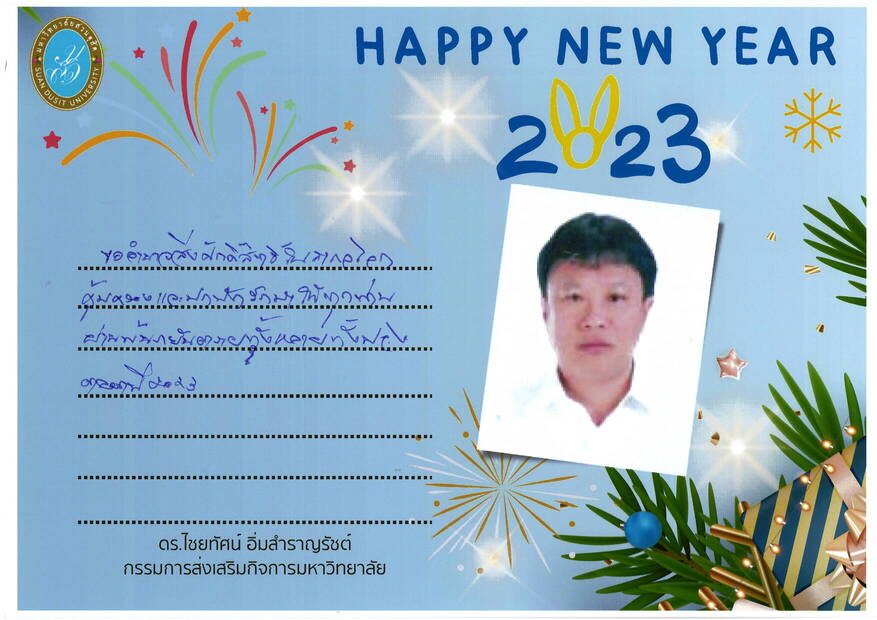 มหาวิทยาลัยสวนดุสิต
SUAN DUSIT UNIVERSITY
HAPPY NEW YEAR
2023
ขออำนาจสิ่งศักดิ์สิทธิ์ในสากลโลก
คุ้มครองและปกปักรักษาให้ทุกท่าน
ผ่านพ้นภยันตรายทั้งหลายทั้งปวง
ตลอดปี ๒๐๒๓
ดร.ไชยทัศน์ อิ่มสำราญรัชต์
กรรมการส่งเสริมกิจการมหาวิทยาลัย